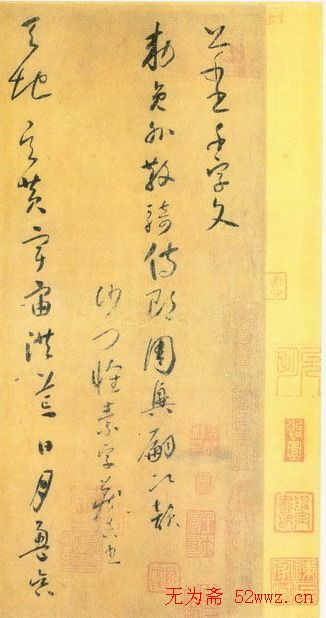 千字文
勅員外散騎侍郎周興嗣次韻
沙門懷素字藏真
天地玄黃宇宙洪荒日月盈昃
无为斋 52wwz.cn